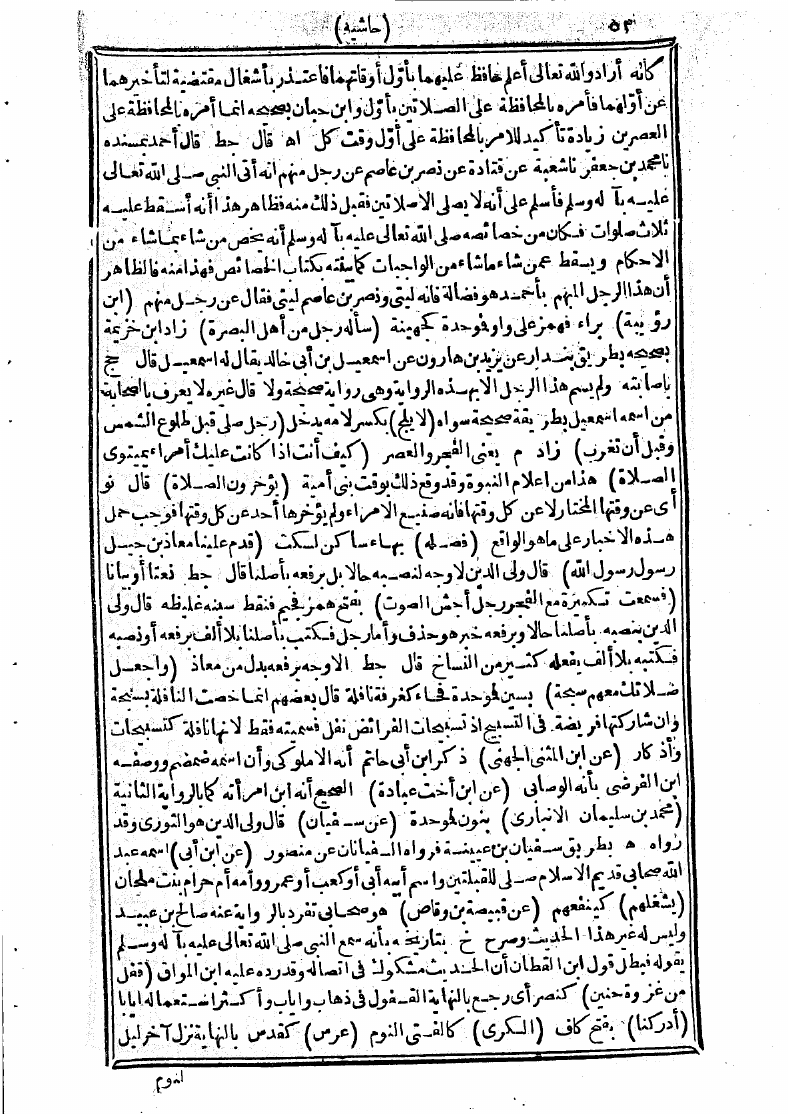 ٥٣ (حاشيه)
كانه أراد والله تعالى أعلم حافظ عليهما بأول أوقاتهما فاعتذر بأشغال مقتضية لتأخيرهما
عن أولهما فأمره بالمحافظة على الصلاتين بأول وابن حبان بصحيحه انما أمره بالمحافظة على
العصرين زيادة تأكيد للامر بالمحافظة على أول وقت كل اه قال حط قال أحمد بمسنده
نا محمد بن جعفر نا شعبة عن قتادة عن نصر بن عاصم عن رجل منهم انه أتى النبي صلى الله تعالى
عليه بآله وسلم فأسلم على أنه لا يصلى الا صلاتين فقبل ذلك منه فظاهر هذا أنه أسقط عليه
ثلاث صلوات فكان من خصائصه صلى الله تعالى عليه بآله وسلم أنه يخص من شاء بما شاء من
الاحكام ويسقط عمن شاء ما شاء من الواجبات كما بينته بكتاب الخصائص فهذا منه فالظاهر
أن هذا الرجل المبهم بأحمد هو فضالة فانه ليثى ونصر بن عاصم ليثى فقال عن رجل منهم (ابن
رؤيبة) براء فهمز على واو فوحدة كجهينة (سأله رجل من أهل البصرة) زاد ابن خزيمة
بصحيحه بطريق بندار عن يزيد بن هارون عن اسمعيل بن أبى خالد يقال له اسمعيل قال حج
باصابته ولم يسم هذا الرجل الا بهذه الرواية وهى رواية صحيحة ولا قال غيره لا يعرف بالصحابة
من اسمه اسمعيل بطريقة صحيحة سواه (لا يلج) بكسر لامه يدخل (رجل صلى قبل طلوع الشمس
وقبل أن تغرب) زاد م يعنى الفجر والعصر (كيف أنت اذا كانت عليك أمراء يميتون
الصلاة) هذا من اعلام النبوة وقد وقع ذلك بوقت بنى أمية (يؤخرون الصلاة) قال نو
أى عن وقتها المختار لا عن كل وقتها فانه صنيع الامراء ولم يؤخرها أحد عن كل وقتها فوجب حمل
هذه الاخبار على ما هو الواقع (فصله) بهاء ساكن لسكت (قدم علينا معاذ بن جبل
رسول رسول الله) قال ولى الدين لا وجه لنصبه حالا بل برفعه بأصلنا قال حط نعتا أو بيانا
(فسمعت تكبيره مع الفجر رجل أجش الصوت) بفتح همز فجيم فنقط سينه غليظه قال ولى
الدين ينصبه بأصلنا حالا ويرفعه خبر هو حذف وأما رجل فكتب بأصلنا بلا ألف برفعه أو نصبه
فكتبه بلا ألف يفعله كثير من النساخ قال حط الاوجه برفعه بدل من معاذ (واجعل
صلاتك معهم سبحة) بسين فوحدة فحاء كغرفة نافلة قال بعضهم انما خصت النافلة بسبحة
وان شاركتها فريضة فى التسبيح اذ تسبيحات الفرائض نفل فسميته فقط لانها نافلة كتسبيحات
وأذكار (عن ابن المثنى الجهنى) ذكر ابن أبى حاتم أنه الاملوكى وأن اسمه ضمضم ووصفه
ابن الفرضى بأنه الوصابى (عن ابن أخت عبادة) الصحيح أنه ابن امرأته كما بالرواية الثانية
(محمد بن سليمان الانبارى) بنون فوحدة (عن سفيان) قال ولى الدين هو الثورى وقد
رواه ه بطريق سفيان بن عيينة فرواه السفيانان عن منصور (عن ابن أبى) اسمه عبد
الله صحابى قديم الاسلام صلى للقبلتين واسم أبيه أبى أو كعب أو عمرو وأمه أم حرام بنت ملحان
(يشغلهم) كينفعهم (عن قبيصة بن وقاص) هو صحابى تفرد بالرواية عنه صالح بن عبيد
وليس له غير هذا الحديث وصرح خ بتاريخه بأنه سمع النبى صلى الله تعالى عليه بآله وسلم
يقوله فبطل قول ابن القطان أن الحديث مشكوك فى اتصاله وقد رده عليه ابن المواق (قفل
من غزوة حنين) كنصر أى رجع بالنهاية القفول فى ذهاب واياب وأكثر استعماله ايابا
(أدركنا) بفتح كاف (الكرى) كالفتى النوم (عرس) كقدس بالنهاية نزل آخر ليل
لنوم